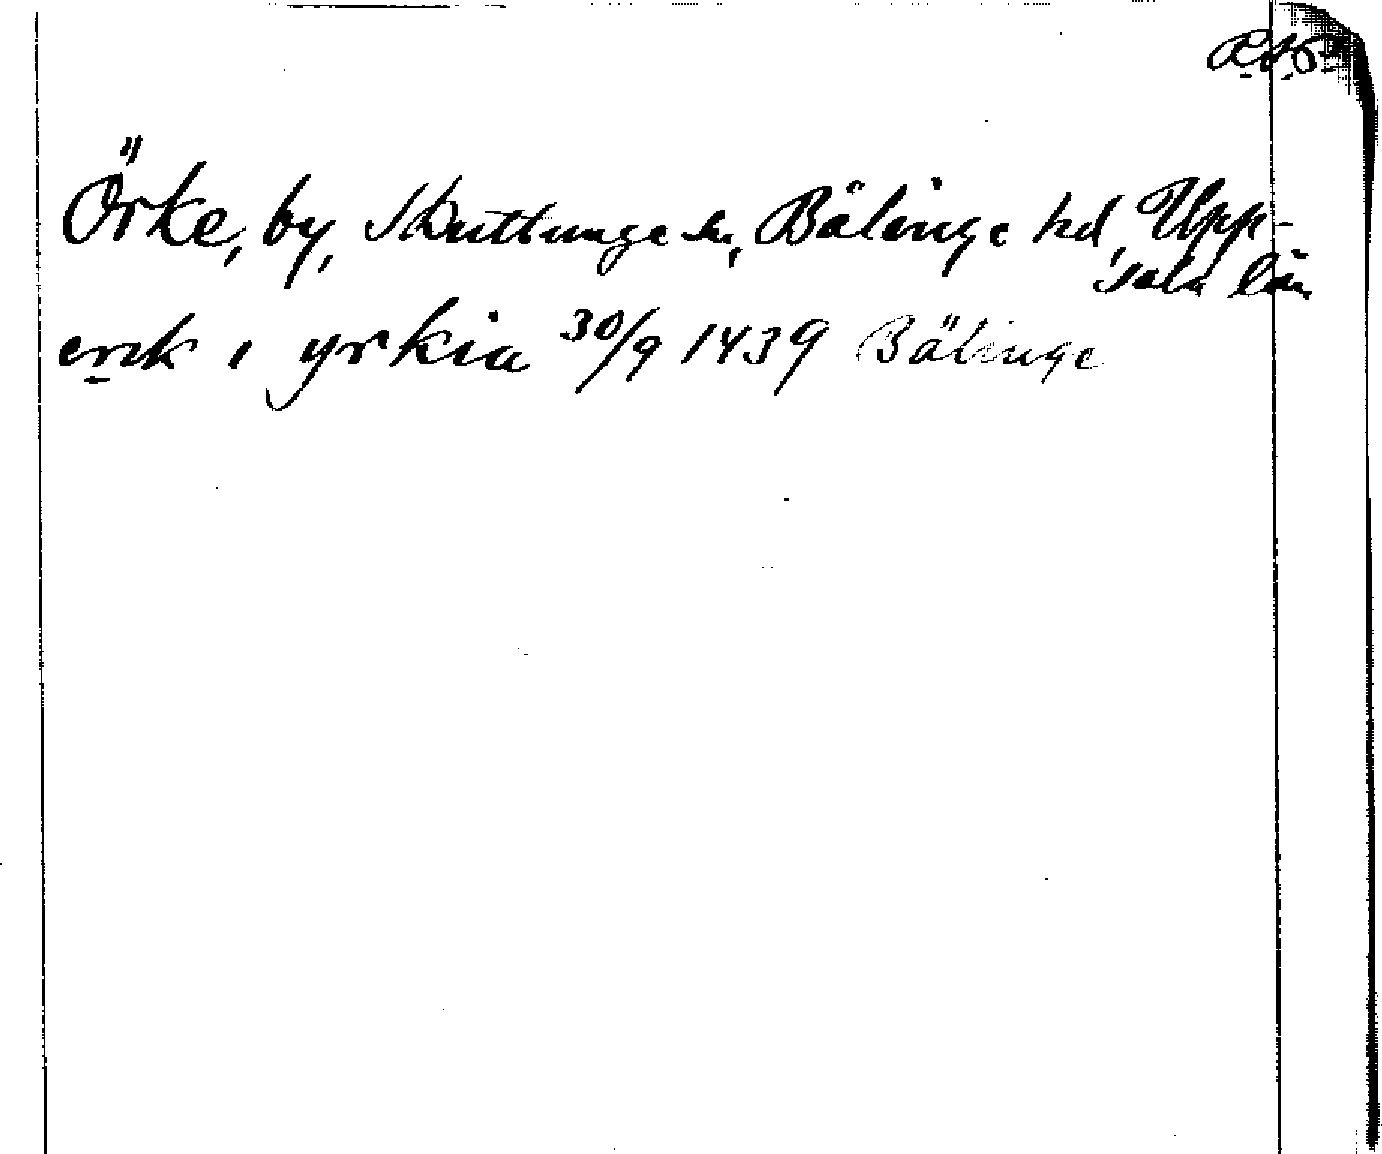 Örke, by, Skuttunge sn, Bälinge hd, Upp-
sala län
erik i yrkia 30/9 1439 Bälinge